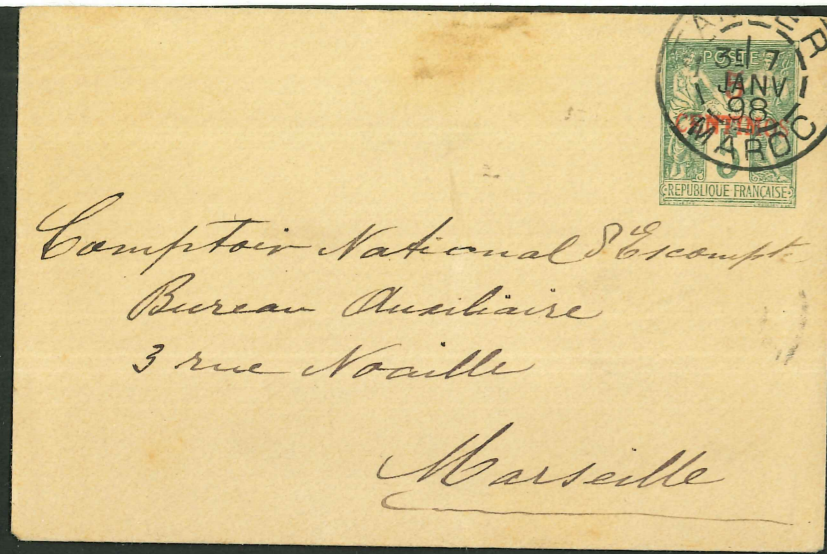 TANGER
3E 7
JANV
98
MAROC
POSTES
5
CENTIMOS
5
REPUBLIQUE FRANÇAISE
Comptoir National d'Escompte
Bureau Auxiliaire
3 rue Noaille
Marseille